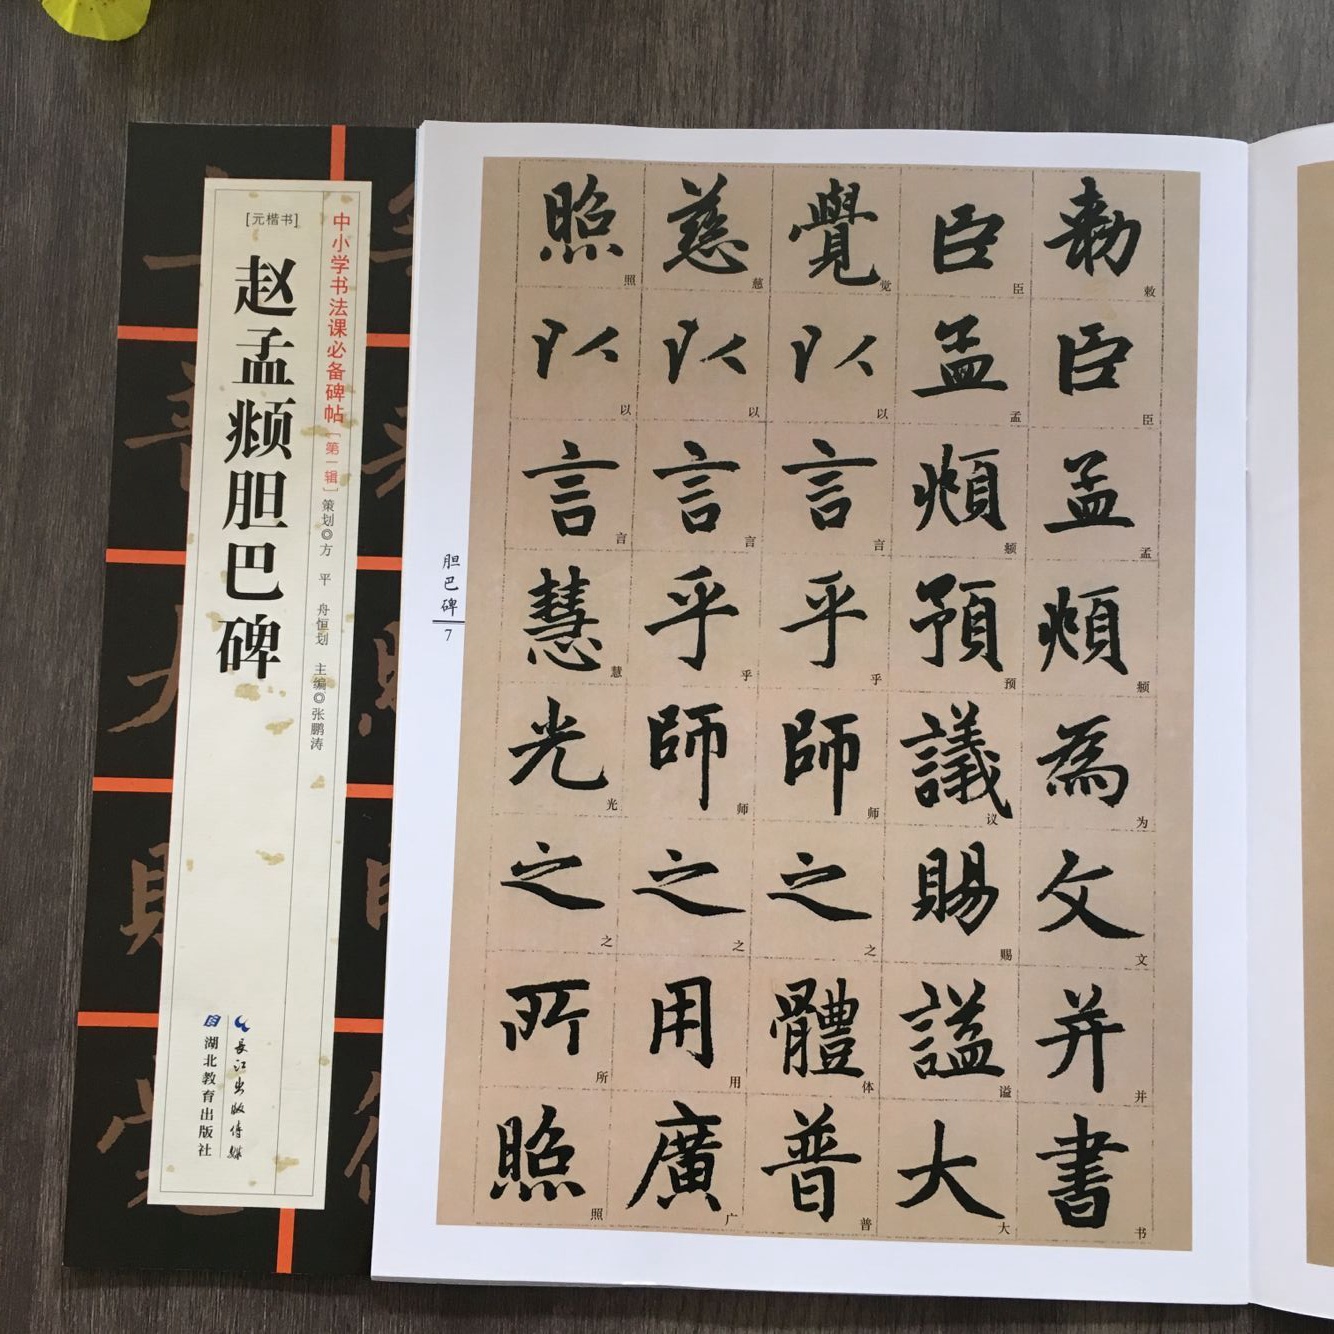 [元楷书]
赵孟頫胆巴碑
中小学书法课必备碑帖［第一辑］策划◎方 平 舟恒划 主编◎张鹏涛
長江出版传媒
湖北教育出版社
胆巴碑
7
敕臣孟頫為文并書
敕臣孟頫为文并书
臣孟頫預議賜謚大
臣孟頫预议赐谥大
覺以言乎師之體普
觉以言乎师之体普
慈以言乎師之用廣
慈以言乎师之用广
照以言慧光之所照
照以言慧光之所照